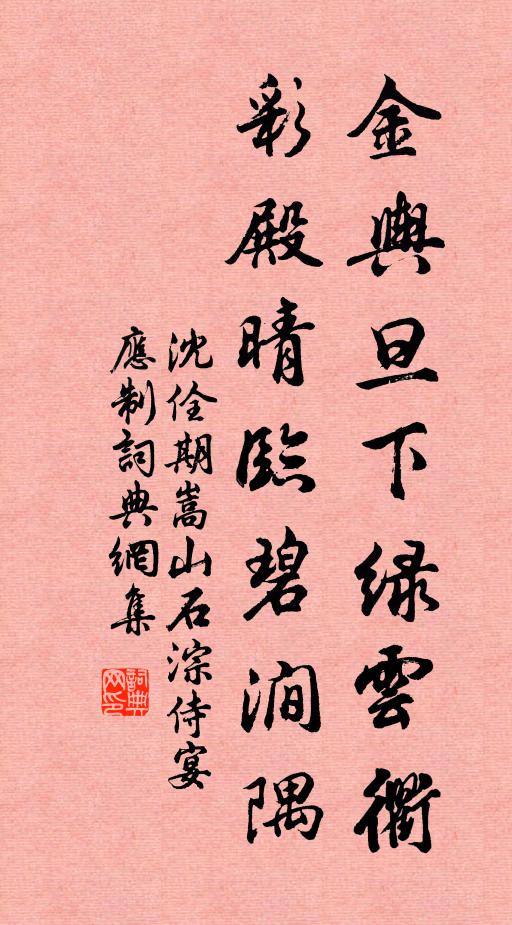 金輿旦下綠雲衢
彩殿晴臨碧澗隅
沈佺期嵩山石淙侍宴
應制詞典網集
詞典
网印